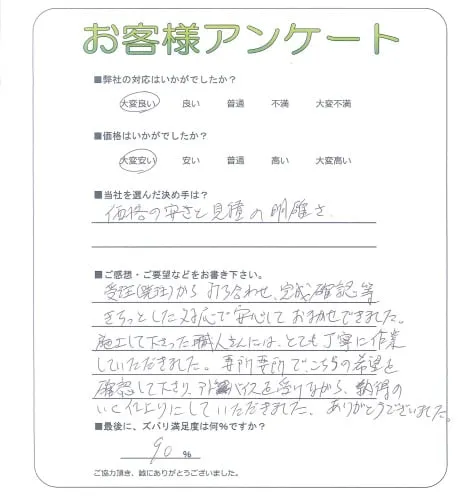 お客様アンケート
■弊社の対応はいかがでしたか?
大変良い 良い 普通 不満 大変不満
■価格はいかがでしたか?
大変安い 安い 普通 高い 大変高い
■当社を選んだ決め手は?
価格の安さと見積の明確さ
■ご感想・ご要望などをお書き下さい。
受注(発注)から打ち合わせ、完成確認等
きちっとした対応で安心しておまかせできました。
施工して下さった職人さんには、とても丁寧に作業
していただきました。要所要所でこちらの希望を
確認して下さり、アドバイスを受けながら、納得の
いく仕上りにしていただきました。ありがとうございました。
■最後に、ズバリ満足度は何%ですか?
90 %
ご協力頂き、誠にありがとうございました。